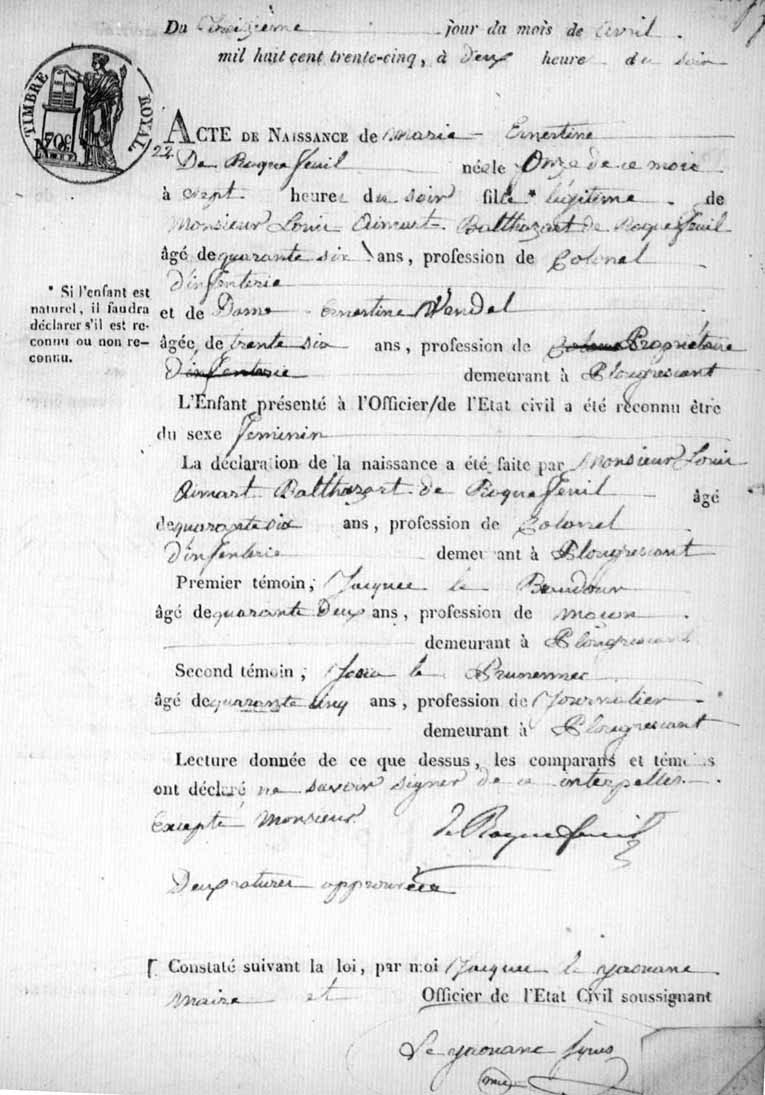 Du treizième jour du mois de Avril.
mil huit cent trente-cinq, à deux heures du soir
TIMBRE ROYAL
70c
ACTE DE NAISSANCE de Marie Ernestine
22
De Roquefeuil née le Onze de ce mois
à sept heures du soir fille * légitime de
Monsieur Louis Aimart Balthazart de Roquefeuil
âgé de quarante six ans, profession de Colonel
d'infenterie
et de Dame Ernestine Wendel
* Si l'enfant est
naturel, il faudra
déclarer s'il est re-
connu ou non re-
connu.
âgée de trente six ans, profession de Propriétaire
d'infenterie demeurant à Plougrescant
L'Enfant présenté à l'Officier/de l'Etat civil a été reconnu être
du sexe feminin
La déclaration de la naissance a été faite par Monsieur Louis
Aimart Balthazart de Roquefeuil âgé
de quarante six ans, profession de Colonel
d'infenterie demeurant à Plougrescant
Premier témoin, Jacques le Baudour
âgé de quarante deux ans, profession de maçon
demeurant à Plougrescant
Second témoin, le Prunennec
âgé de quarante cinq ans, profession de Journalier
demeurant à Plougrescant
Lecture donnée de ce que dessus, les comparans et témoins
ont déclaré ne savoir signer de ce interpelles.
Excepté Monsieur de Roquefeuil
Deux ratures approuvées
Constaté suivant la loi, par moi Jacques le yaouanc
maire et Officier de l'Etat Civil soussignant
Le yaouanc